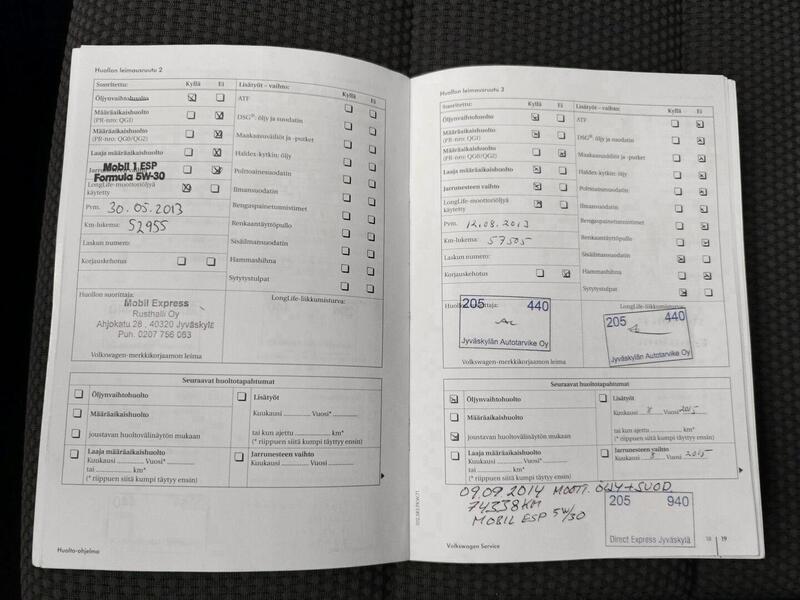 Huollon leimausruutu 2
Suoritettu:
Kyllä
Ei
Öljynvaihtohuolto
Määräaikaishuolto
(PR-nro: QGI)
Määräaikaishuolto
(PR-nro: QG0/QG2)
Laaja määräaikaishuolto
Mobil 1 ESP
Formula 5W-30
LongLife-moottoriöljyä
käytetty
Pvm.
30.05.2013
Km-lukema:
52955
Laskun numero:
Korjauskehotus
Huollon suorittaja:
Mobil Express
Rusthalli Oy
Ahjokatu 28, 40320 Jyväskylä
Puh. 0207 756 063
Volkswagen-merkkikorjaamon leima
Lisätyöt – vaihto:
Kyllä
Ei
ATF
DSG®: öljy ja suodatin
Maakaasuväiliöt ja -putket
Haldex-kytkin: öljy
Polttoainesuodatin
Ilmansuodatin
Rengaspainetunnistimet
Renkaantäyttöpullo
Sisäilmansuodatin
Hammashihna
Sytytystulpat
LongLife-liikkumisturva:
Seuraavat huoltotapahtumat
Öljynvaihtohuolto
Määräaikaishuolto
joustavan huoltovälinäytön mukaan
Laaja määräaikaishuolto
Kuukausi Vuosi*
tai km*
(* riippuen siitä kumpi täyttyy ensin)
Lisätyöt
Kuukausi Vuosi*
tai kun ajettu km*
(* riippuen siitä kumpi täyttyy ensin)
Jarrunesteen vaihto
Kuukausi Vuosi
Huolto-ohjelma
Huollon leimausruutu 3
Suoritettu:
Kyllä
Ei
Öljynvaihtohuolto
Määräaikaishuolto
(PR-nro: QGI)
Määräaikaishuolto
(PR-nro: QG0/QG2)
Laaja määräaikaishuolto
Jarrunesteen vaihto
LongLife-moottoriöljyä
käytetty
Pvm.
12.08.2013
Km-lukema:
57505
Laskun numero:
Korjauskehotus
205 440
Jyväskylän Autotarvike Oy
Volkswagen-merkkikorjaamon leima
Lisätyöt – vaihto:
Kyllä
Ei
ATF
DSG®: öljy ja suodatin
Maakaasuväiliöt ja -putket
Haldex-kytkin: öljy
Polttoainesuodatin
Ilmansuodatin
Rengaspainetunnistimet
Renkaantäyttöpullo
Sisäilmansuodatin
Hammashihna
Sytytystulpat
LongLife-liikkumisturva:
205 440
Jyväskylän Autotarvike Oy
Seuraavat huoltotapahtumat
Öljynvaihtohuolto
Määräaikaishuolto
joustavan huoltovälinäytön mukaan
Laaja määräaikaishuolto
Kuukausi Vuosi*
tai km*
(* riippuen siitä kumpi täyttyy ensin)
Lisätyöt
Kuukausi 8 Vuosi 2015
tai kun ajettu km*
(* riippuen siitä kumpi täyttyy ensin)
Jarrunesteen vaihto
Kuukausi 8 Vuosi 2015
09.09 2014 MOOTT. ÖLJY+SUOD
74338KM
MOBIL ESP 5W/30
205 940
Direct Express Jyväskylä
Volkswagen Service
18 19